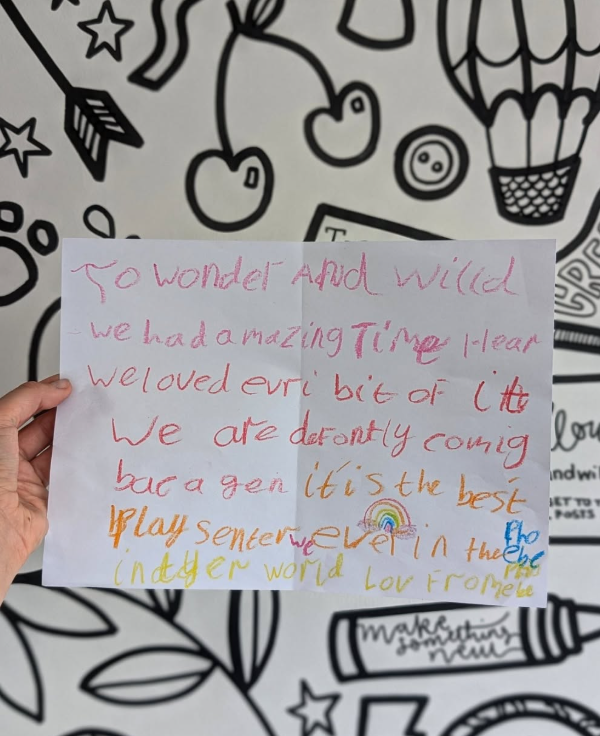 To wonder And Willd
we had amazing Time Hear
we loved evri bit of it
We are defontly comig
bac a gen it is the best
Play senter we ever in the
indyer world Lov From Phoebe
Phoebe
make
something
new